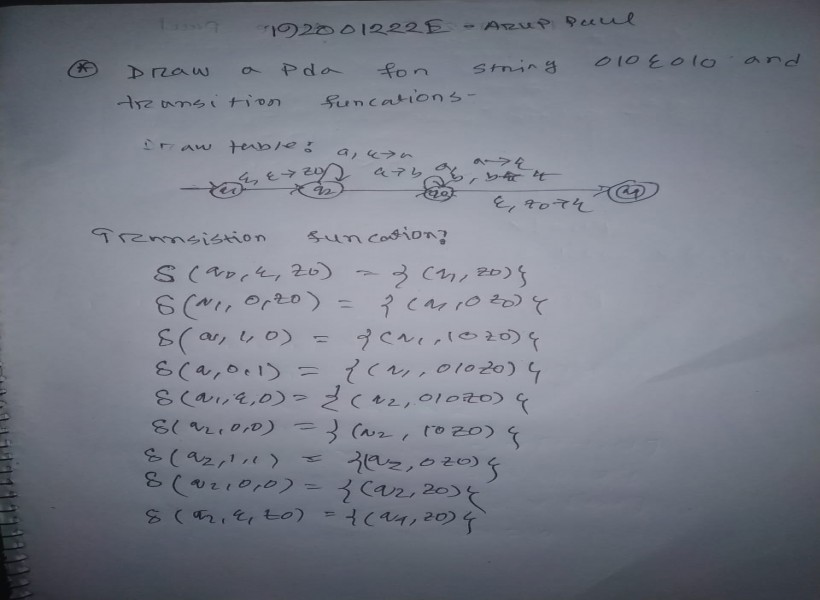 192001222E - ARUP Paul
* Draw a Pda for string 010ε010 and
transition funcations-
Draw table:
a, ε→a
ε, ε→z0
a→b
a→ε
b, b
ε, z0→ε
q1 q2 q3 q4
Trannsistion funcation?
δ(q0, ε, z0) = {(q1, z0)}
δ(q1, 0, z0) = {(q1, 0z0)}
δ(q1, 1, 0) = {(q1, 10z0)}
δ(q, 0, 1) = {(q1, 010z0)}
δ(q1, ε, 0) = {(q2, 010z0)}
δ(q2, 0, 0) = {(q2, 10z0)}
δ(q2, 1, 1) = {(q2, 0z0)}
δ(q2, 0, 0) = {(q2, z0)}
δ(q2, ε, z0) = {(q4, z0)}